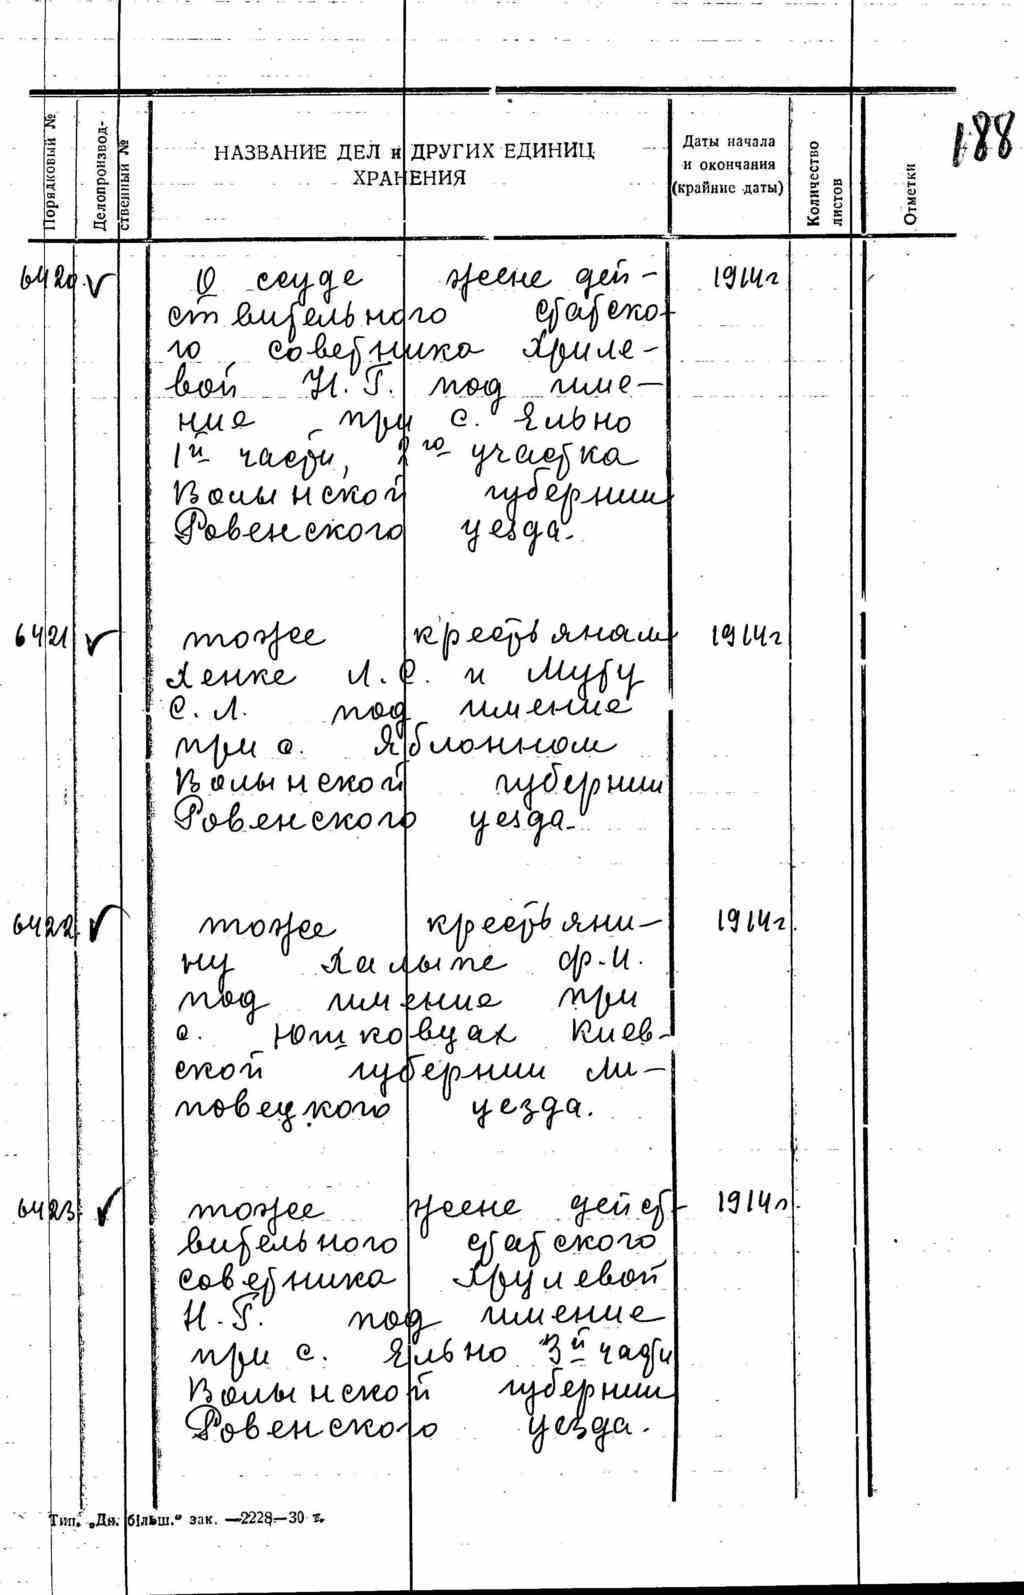 188
Порядковый №
Делопроизвод-
ственный №
НАЗВАНИЕ ДЕЛ и ДРУГИХ ЕДИНИЦ
ХРАНЕНИЯ
Даты начала
и окончания
(крайние даты)
Количество
листов
Отметки
6420 О ссуде жене дей- 1914г
ствительного статско-
го советника Хриле-
вой Н. Г. под име-
ние при с. Яльно
1й части, 2го участка
Волынской губернии
Ровенского уезда.
6421 тоже крестьянам 1914г
Хенке Л. С. и Муту
С. Л. под имение
при с. Яблонном
Волынской губернии
Ровенского уезда.
6422 тоже крестьяни- 1914г.
ну Ф. И.
под имение при
с. Юшковцах Киев-
ской губернии Ли-
повецкого уезда.
6423 тоже жене дейст- 1914г.
вительного статского
советника Хрулевой
Н. Г. под имение
при с. Яльно 3й части
Волынской губернии
Ровенского уезда.
Тип. „Дн. більш.“ зак. —2228—30 т.